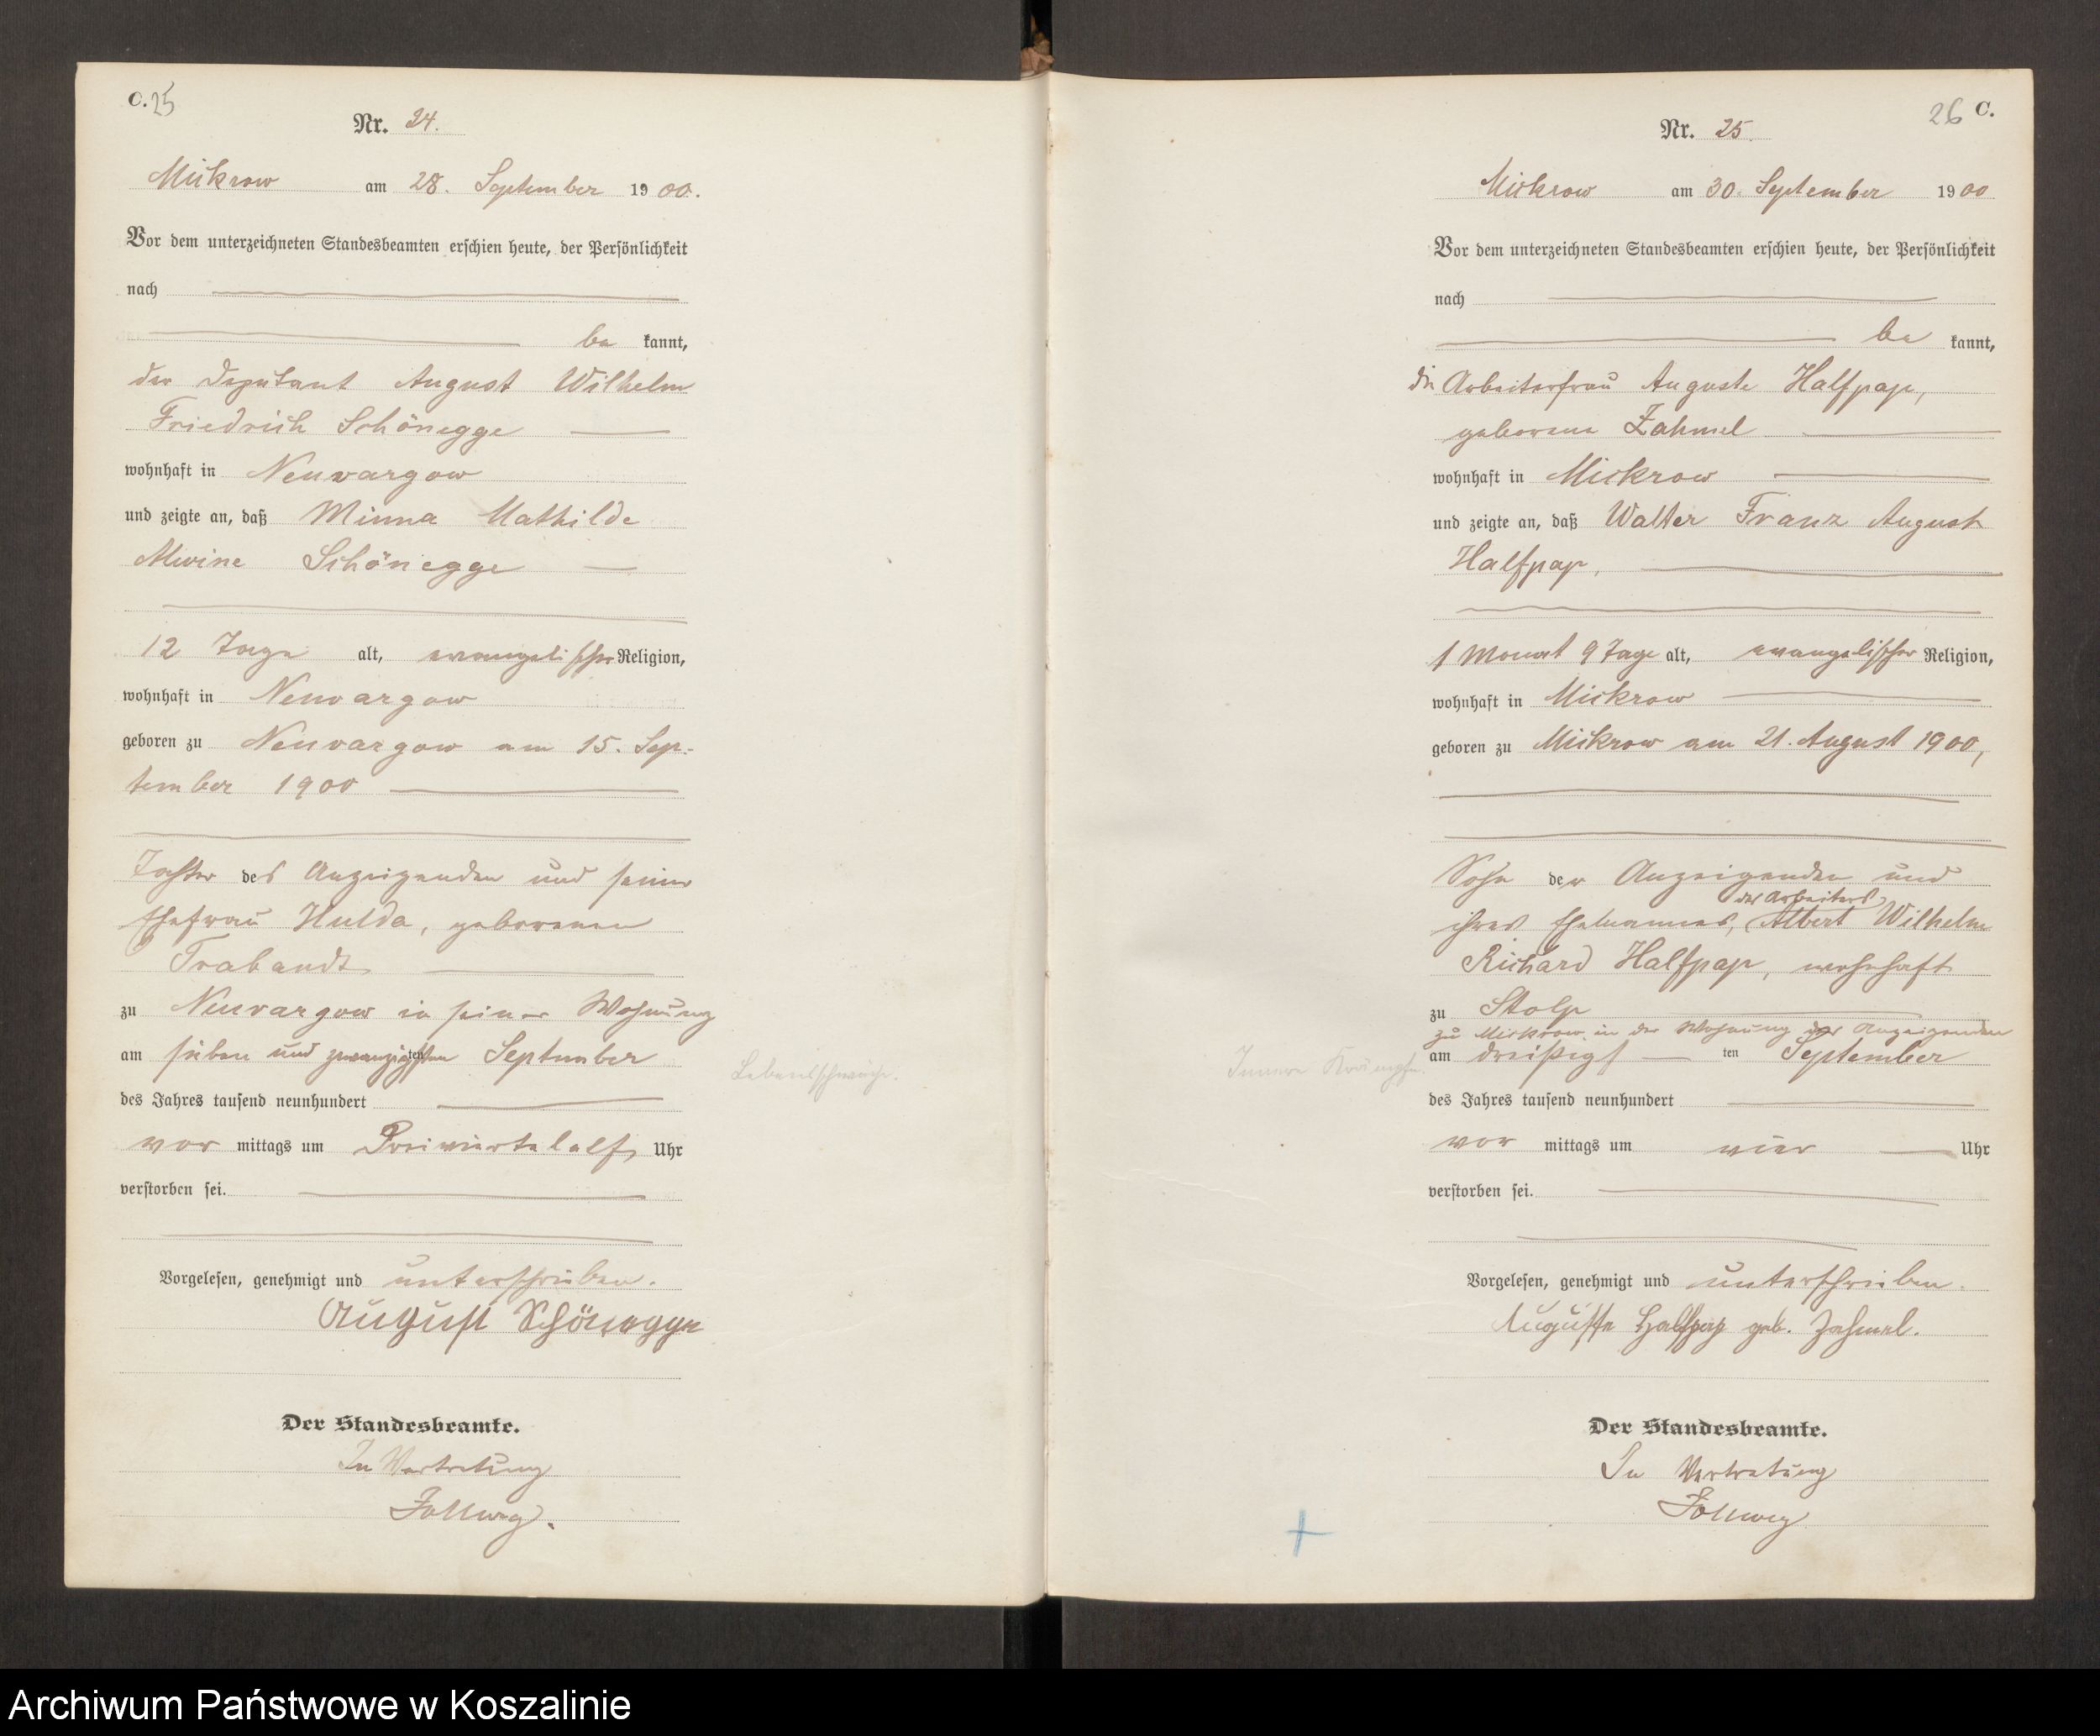 C. 25
Nr. 24.
Mickrow am 28. September 1900.
Vor dem unterzeichneten Standesbeamten erschien heute, der Persönlichkeit
nach
be kannt,
der Deputant August Wilhelm
Friedrich Schönegge
wohnhaft in Neuvargow
und zeigte an, daß Minna Mathilde
Alwine Schönegge
12 Tage alt, evangelischer Religion,
wohnhaft in Neuvargow
geboren zu Neuvargow am 15. Sep-
tember 1900
Tochter des Anzeigenden und seiner
Ehefrau Hulda, geborenen
Trabandt
zu Neuvargow in seiner Wohnung
am sieben und zwanzigsten ten September
des Jahres tausend neunhundert
vor mittags um Dreiviertelelf Uhr
verstorben sei.
Lebensschwäche.
Vorgelesen, genehmigt und unterschrieben.
August Schönegge
Der Standesbeamte.
In Vertretung
Follweg.
26 C.
Nr. 25.
Mickrow am 30. September 1900
Vor dem unterzeichneten Standesbeamten erschien heute, der Persönlichkeit
nach
be kannt,
die Arbeiterfrau Auguste Halfpap,
geborene Zahmel
wohnhaft in Mickrow
und zeigte an, daß Walter Franz August
Halfpap,
1 Monat 9 Tage alt, evangelischer Religion,
wohnhaft in Mickrow
geboren zu Mickrow am 21. August 1900,
Sohn der Anzeigenden und
des Arbeiters
ihres Ehemannes, Albert Wilhelm
Richard Halfpap, wohnhaft
zu Stolp
zu Mickrow in der Wohnung der Anzeigenden
am dreißigs ten September
des Jahres tausend neunhundert
vor mittags um vier Uhr
verstorben sei.
Innere Krämpfe.
Vorgelesen, genehmigt und unterschrieben.
Auguste Halfpap geb. Zahmel.
Der Standesbeamte.
In Vertretung
Follweg
Archiwum Państwowe w Koszalinie